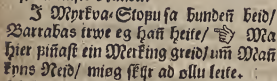 I Myrkva-Stopu sa bunden beid/
Barrabas irwe eg han heite/ ☞ Ma
hier pijnast ein Merking greid/ um Mañ
kyns Neid/ miøg skijr ad ollu leite.